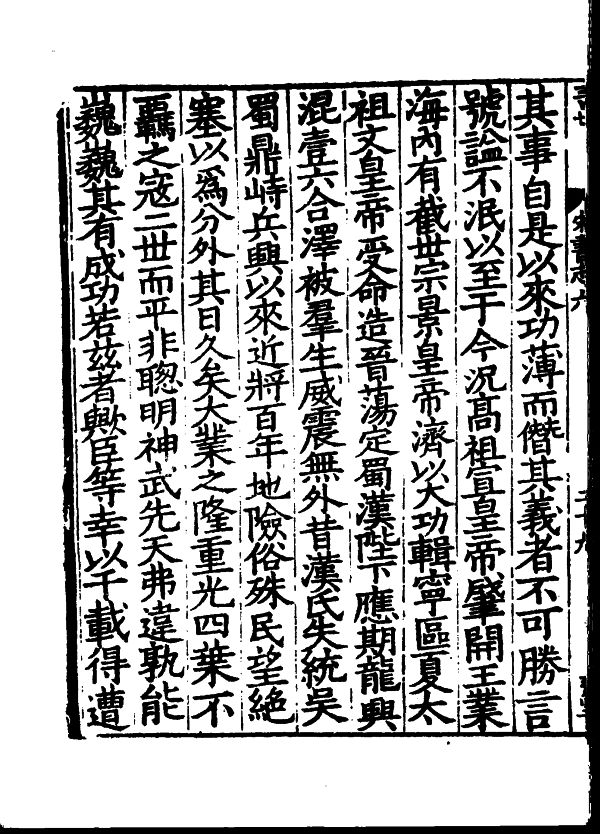 宋書志六
其事自是以來功薄而僭其義者不可勝言
號諡不泯以至于今況高祖宣皇帝肇開王業
海內有截世宗景皇帝濟以大功輯寧區夏太
祖文皇帝受命造晉蕩定蜀漢陛下應期龍興
混壹六合澤被羣生威震無外昔漢氏失統吳
蜀鼎峙兵興以來近將百年地險俗殊民望絕
塞以爲分外其日久矣大業之隆重光四葉不
羈之寇二世而平非聰明神武先天弗違孰能
巍巍其有成功若茲者歟臣等幸以千載得遭